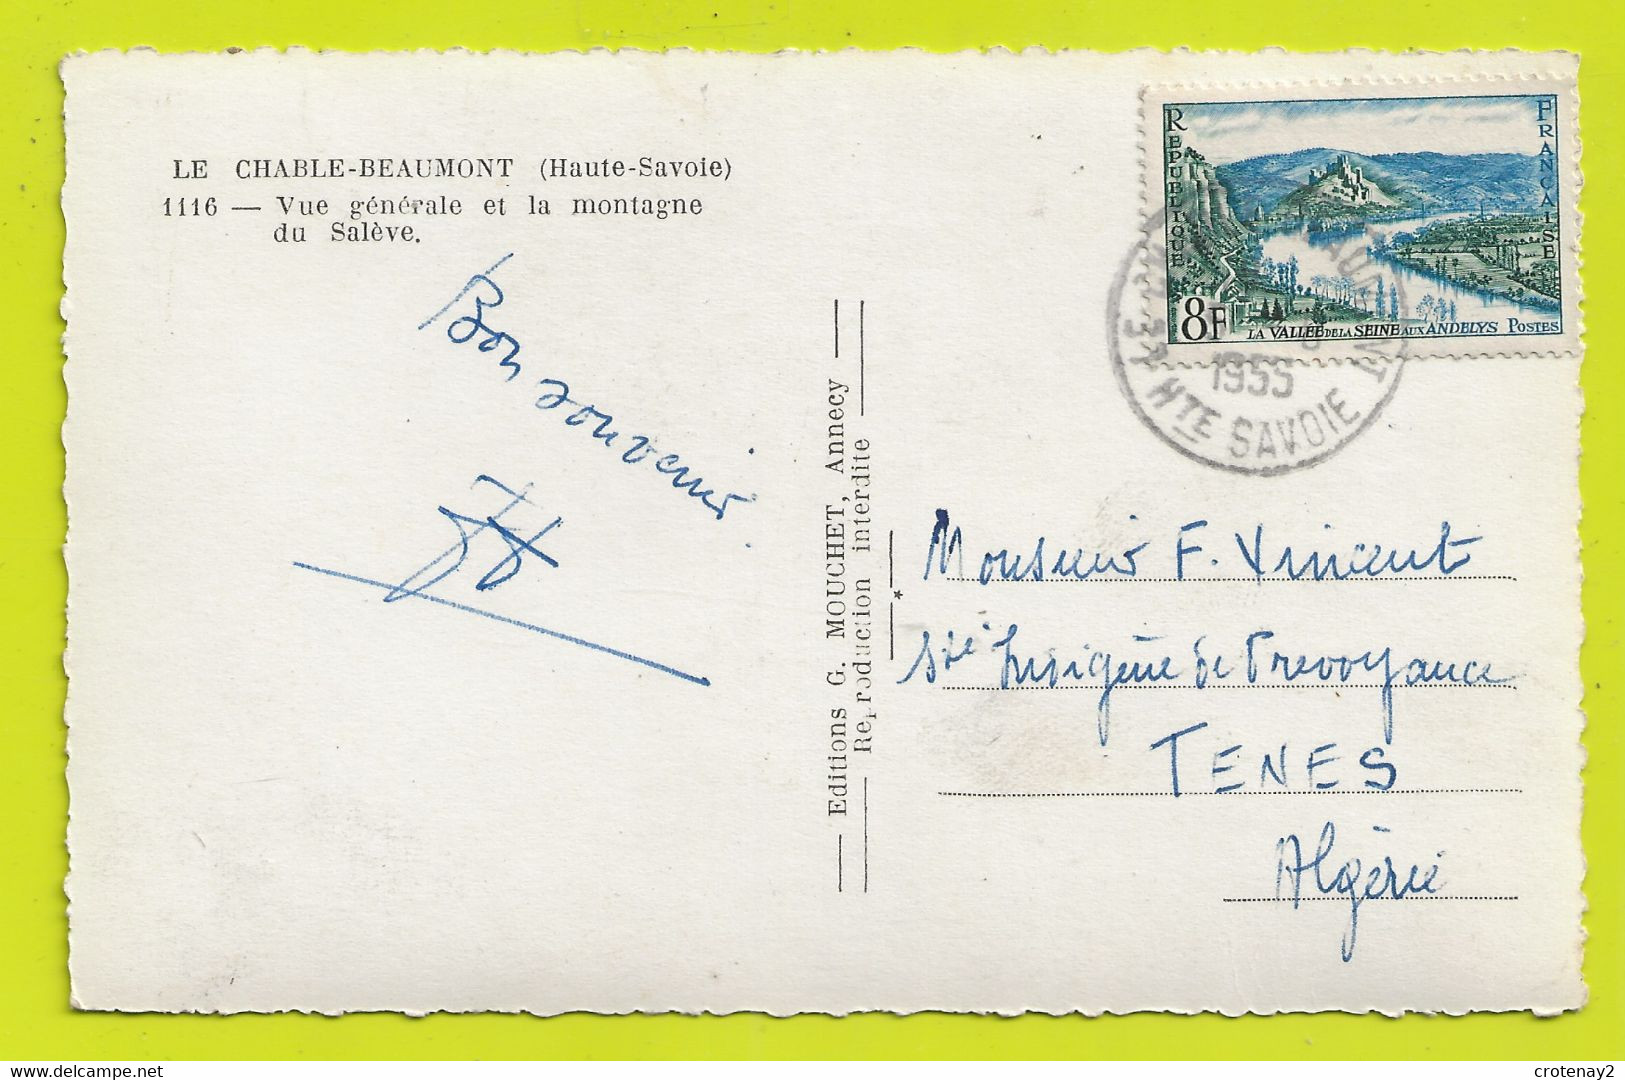 LE CHABLE-BEAUMONT (Haute-Savoie)
1116 — Vue générale et la montagne
du Salève.
Bon souvenir
Editions G. MOUCHET, Annecy
Reproduction interdite
REPUBLIQUE
FRANÇAISE
8F
LA VALLÉE DE LA SEINE AUX ANDELYS POSTES
1955
HTE SAVOIE
Monsieur F. Vincent
Sté Indigène de Prevoyance
TENES
Algérie
crotenay2